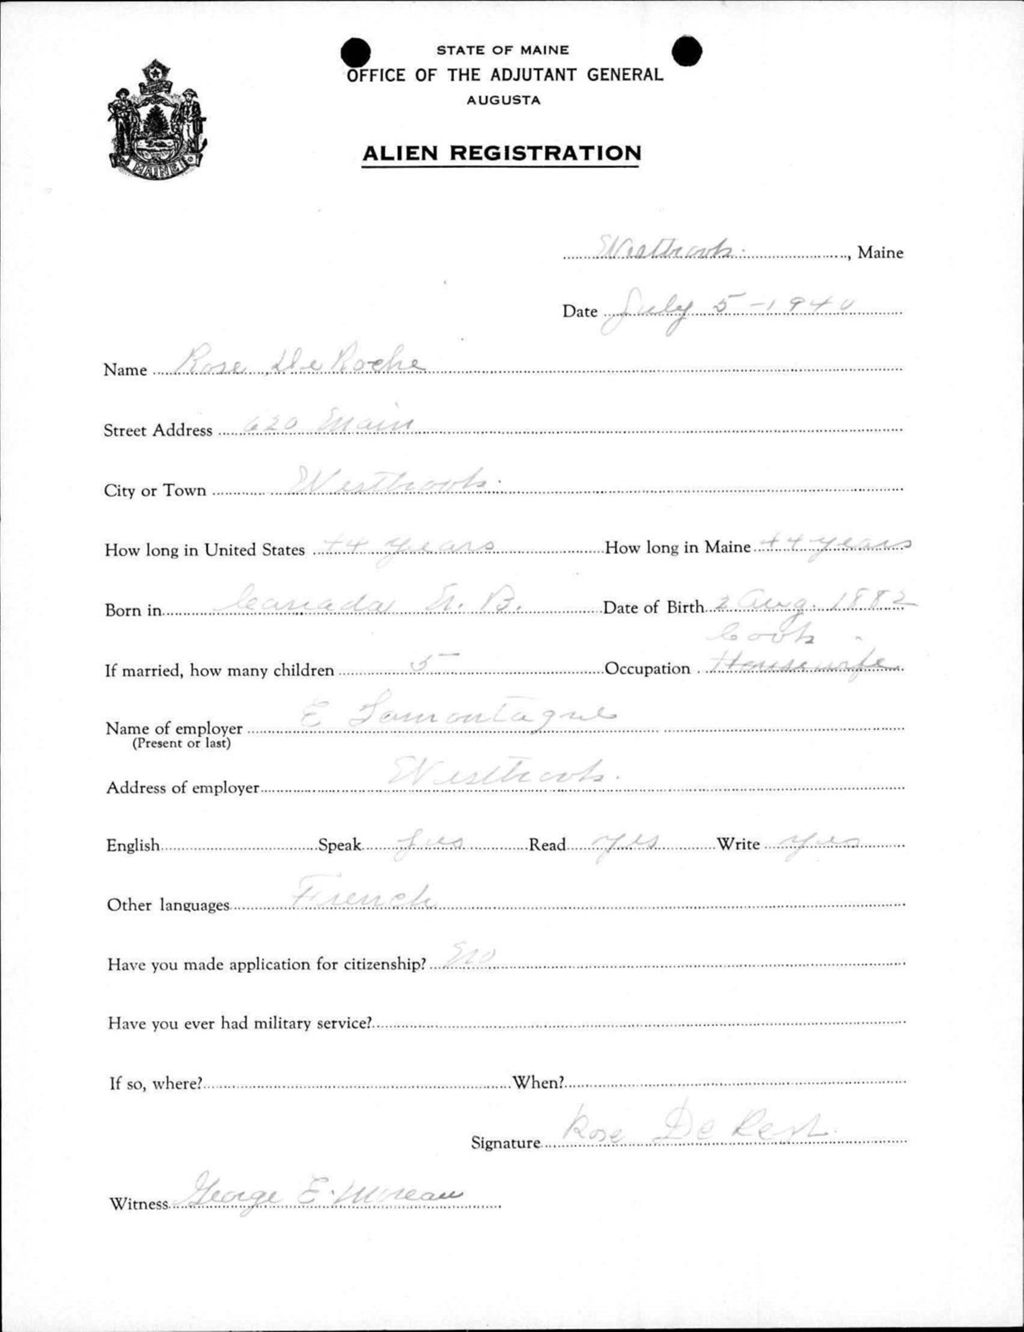 STATE OF MAINE
OFFICE OF THE ADJUTANT GENERAL
AUGUSTA
ALIEN REGISTRATION
MAINE
Westbrook, Maine
Date July 5-1940
Name Rose De Roche
Street Address 620 Main
City or Town Westbrook
How long in United States 44 years How long in Maine 44 years
Born in Canada N.B. Date of Birth 2 Aug. 1882
Cook
If married, how many children 5 Occupation Housewife
Name of employer E Lamontague
(Present or last)
Address of employer Westbrook
English Speak yes Read yes Write yes
Other languages French
Have you made application for citizenship? No
Have you ever had military service?
If so, where? When?
Signature Rose De
Witness George E. Moreau